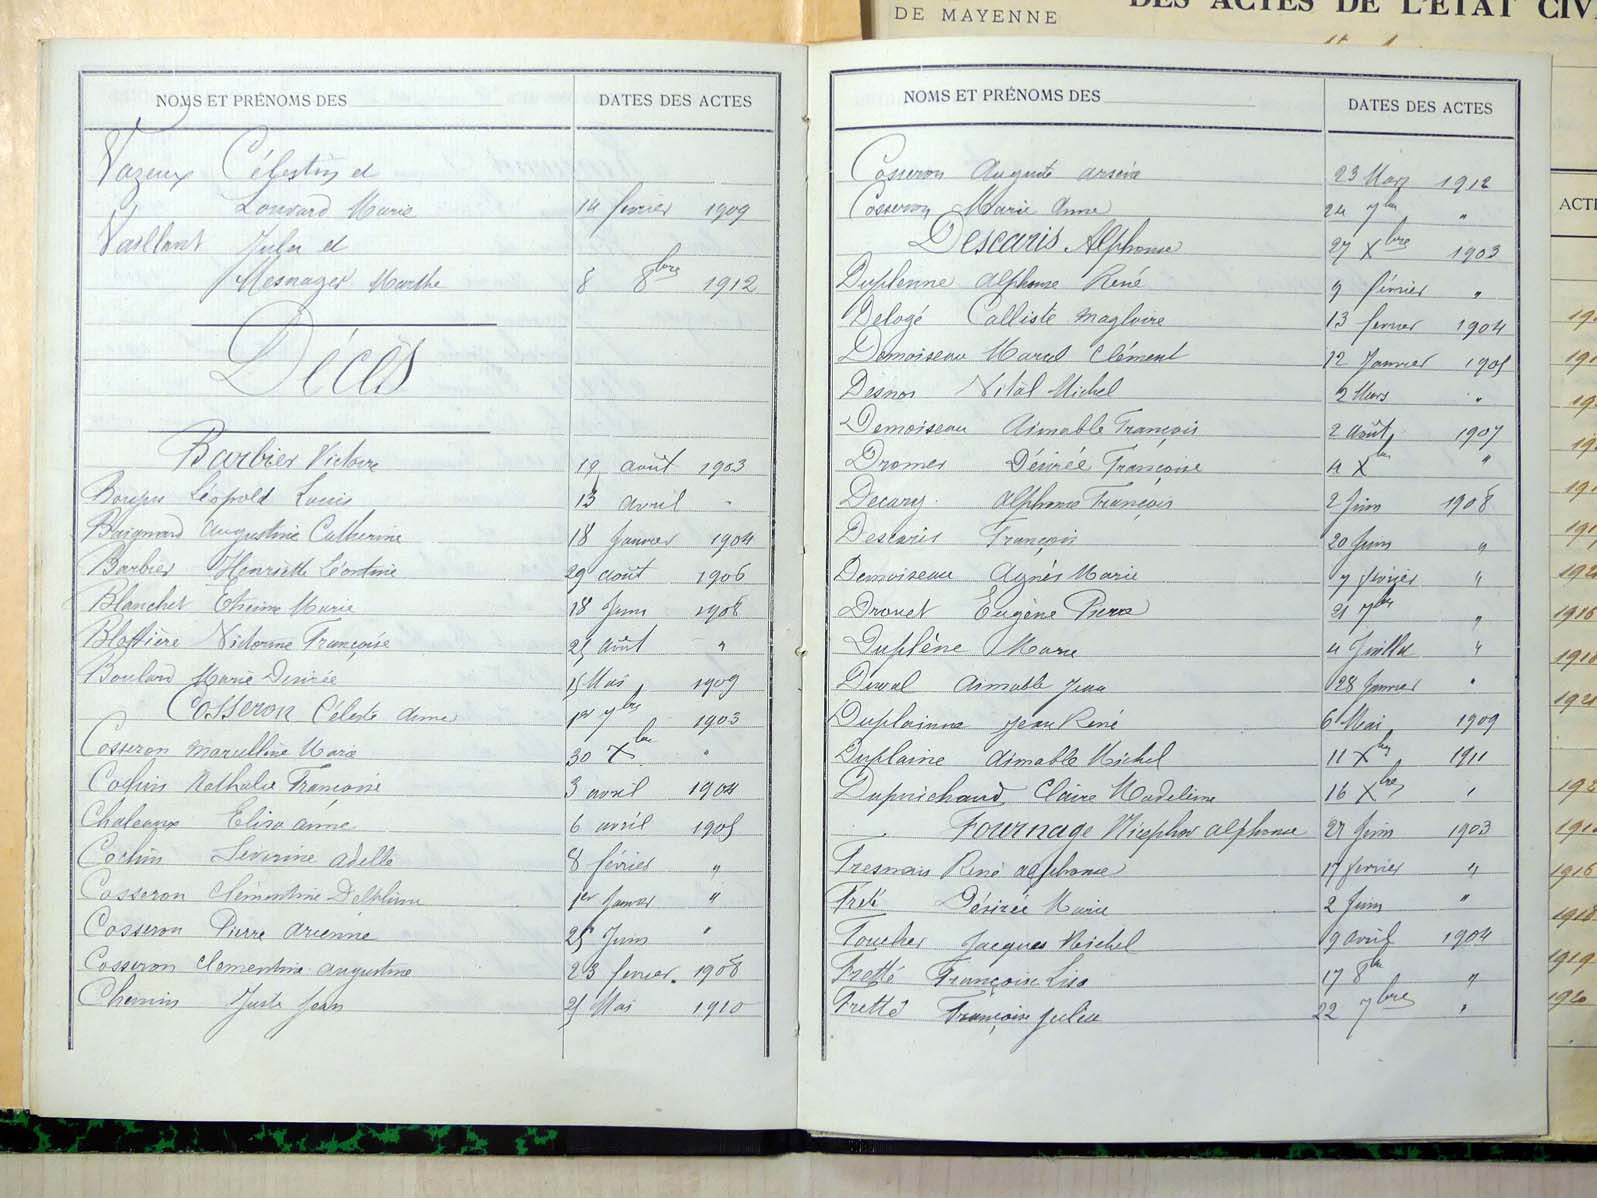 DE MAYENNE
DES ACTES DE L'ÉTAT CIV
NOMS ET PRÉNOMS DES DATES DES ACTES
Vazeux Célestin et
Louvard Marie 14 février 1909
Vaillant Jules et
Mesnager Marthe 8 8bre 1912
Décès
Barbier Victoire 19 août 1903
Léopold Louis 13 avril "
Augustine Catherine 18 Janvier 1904
Barbier Henriette Léontine 29 août 1906
Blanchet Marie 18 Juin 1908
Victorine Françoise 25 août "
Boulard Marie Désirée 15 Mai 1909
Cosseron Céleste Anne 1er 7bre 1903
Cosseron Marcelline Marie 30 Xbre "
Cochin Nathalie Françoise 3 avril 1904
Elisa anne 6 avril 1905
Cochin Séverine adelle 8 février "
Cosseron Clémentine 1er Janvier "
Cosseron Pierre 25 Juin "
Cosseron Clementine augustine 23 fevrier 1908
Chemin Juste Jean 25 Mai 1910
NOMS ET PRÉNOMS DES DATES DES ACTES
Cosseron Auguste arsène 23 Mars 1912
Cosseron Marie Anne 24 7bre "
Descaris Alphonse 27 Xbre 1903
Duplenne Alphonse René 9 février "
Delogé Calliste Magloire 13 fevrier 1904
Demoiseau Marcel Clément 12 Janvier 1905
Desnos Vital Michel 2 Mars "
Demoiseau Aimable François 2 Août 1907
Dromer Désirée Françoise 4 Xbre "
Alphonse François 2 Juin 1908
Descaris François 20 Juin "
Demoiseau Agnès Marie 7 février "
Drouet Eugène Pierre 21 7bre "
Duplène Marie 4 Juillet "
Duval Aimable Jean 28 Janvier "
Duplainne Jean René 6 Mai 1909
Duplaine Aimable Michel 11 Xbre 1911
Claire Madeleine 16 Xbre "
Fournage alphonse 27 Juin 1903
Fresnais René alphonse 17 février "
Désirée Marie 2 Juin "
Foucher Jacques Michel 9 avril 1904
Fretté Françoise 17 8bre "
Fretté Françoise Julie 22 7bre "
ACTE
1916
1918
1916
1918
1919